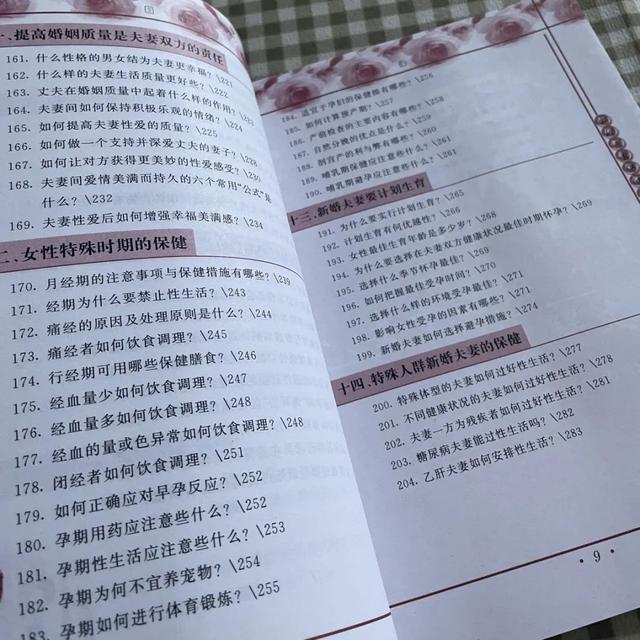 一、提高婚姻质量是夫妻双方的责任
161. 什么性格的男女结为夫妻更幸福?\221
162. 什么样的夫妻生活质量更好些?\222
163. 丈夫在婚姻质量中起着什么样的作用?\223
164. 夫妻间如何保持积极乐观的情绪?\224
165. 如何提高夫妻性爱的质量?\225
166. 如何做一个支持并深爱丈夫的妻子?\228
167. 如何让对方获得更美妙的性爱感受?\230
168. 夫妻间爱情美满而持久的六个常用“公式”是
什么?\232
169. 夫妻性爱后如何增强幸福美满感?\234
二、女性特殊时期的保健
170. 月经期的注意事项与保健措施有哪些?\239
171. 经期为什么要禁止性生活?\243
172. 痛经的原因及处理原则是什么?\244
173. 痛经者如何饮食调理?\245
174. 行经期可用哪些保健膳食?\246
175. 经血量少如何饮食调理?\247
176. 经血量多如何饮食调理?\248
177. 经血的量或色异常如何饮食调理?\248
178. 闭经者如何饮食调理?\251
179. 如何正确应对早孕反应?\252
180. 孕期用药应注意些什么?\252
181. 孕期性生活应注意些什么?\253
182. 孕期为何不宜养宠物?\254
183. 孕期如何进行体育锻炼?\255
184. 适宜于孕妇的保健操有哪些?\256
185. 如何计算预产期?\257
186. 产前检查的主要内容有哪些?\258
187. 自然分娩的优点是什么?\259
188. 剖宫产的利与弊有哪些?\260
189. 哺乳期保健应注意些什么?\261
190. 哺乳期避孕应注意些什么?\261
十三、新婚夫妻要计划生育
191. 为什么要实行计划生育?\265
192. 计划生育有何优越性?\266
193. 女性最佳生育年龄是多少岁?\268
194. 为什么要选择在夫妻双方健康状况最佳时期怀孕?\269
195. 选择什么季节怀孕最佳?\270
196. 如何把握最佳受孕时间?\270
197. 选择什么样的环境受孕最佳?\271
198. 影响女性受孕的因素有哪些?\271
199. 新婚夫妻如何选择避孕措施?\274
十四、特殊人群新婚夫妻的保健
200. 特殊体型的夫妻如何过好性生活?\277
201. 不同健康状况的夫妻如何过好性生活?\278
202. 夫妻一方为残疾者如何过好性生活?\281
203. 糖尿病夫妻能过性生活吗?\282
204. 乙肝夫妻如何安排性生活?\283
·9·